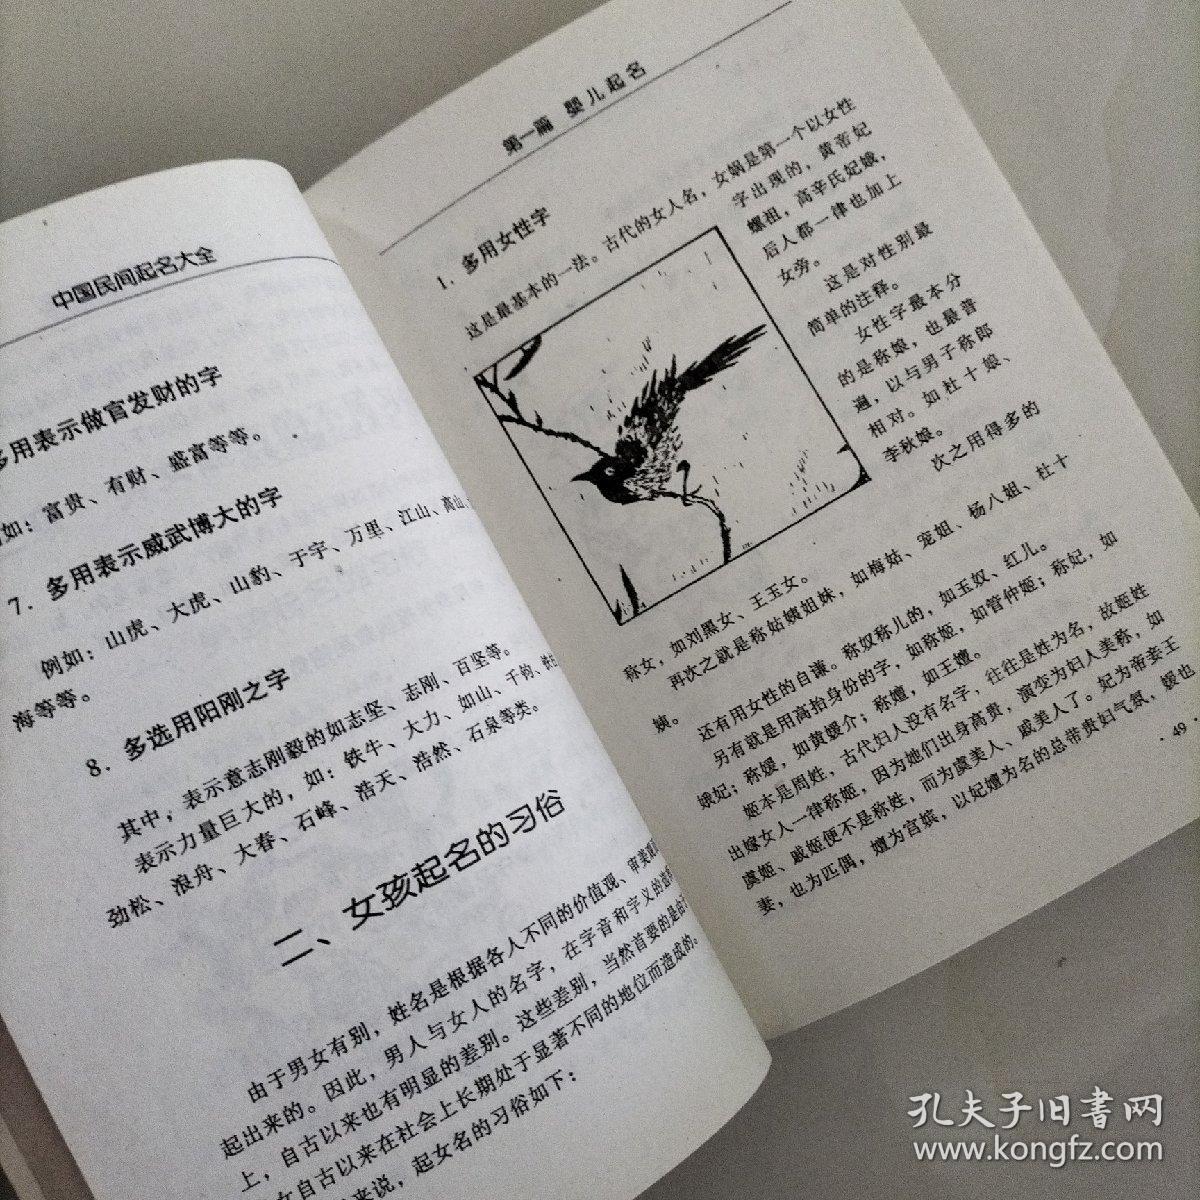 中国民间起名大全
多用表示做官发财的字
例如：富贵、有财、盛富等等。
7．多用表示威武博大的字
例如：山虎、大虎、山豹、于宇、万里、江山、高山、
海等等。
8．多选用阳刚之字
其中，表示意志刚毅的如志坚、志刚、百坚等。
表示力量巨大的，如：铁牛、大力、如山、千钧、
劲松、浪舟、大春、石峰、浩天、浩然、石泉等类。
二、女孩起名的习俗
由于男女有别，姓名是根据各人不同的价值观、审美观
起出来的。因此，男人与女人的名字，在字音和字义的选
上，自古以来也有明显的差别。这些差别，当然首要的是由于
女自古以来在社会上长期处于显著不同的地位而造成的。
来说，起女名的习俗如下：
第一篇 婴儿起名
1．多用女性字
这是最基本的一法。古代的女人名，女娲是第一个以女性
字出现的，黄帝妃
嫘祖，高辛氏妃娥，
后人都一律也加上
女旁。
这是对性别最
简单的注释。
女性字最本分
的是称娘，也最普
遍，以与男子称郎
相对。如杜十娘、
李秋娘。
次之用得多的
称女，如刘黑女、王玉女。
再次之就是称姑姨姐妹，如梅姑、宠姐、杨八姐、杜十
姨。
还有用女性的自谦。称奴称儿的，如玉奴、红儿。
另有就是用高抬身份的字，如称姬，如管仲姬；称妃，如
娥妃；称媛，如黄媛介；称嬗，如王嬗。
姬本是周姓，古代妇人没有名字，往往是姓为名，故姬姓
出嫁女人一律称姬，因为她们出身高贵，演变为妇人美称，如
虞姬、戚姬便不是称姓，而为虞美人、戚美人了。妃为帝妾王
妻，也为匹偶，嬗为宫嫔，以妃嬗为名的总带贵妇气氛，媛也
· 49 ·
孔夫子旧書网
www.kongfz.com